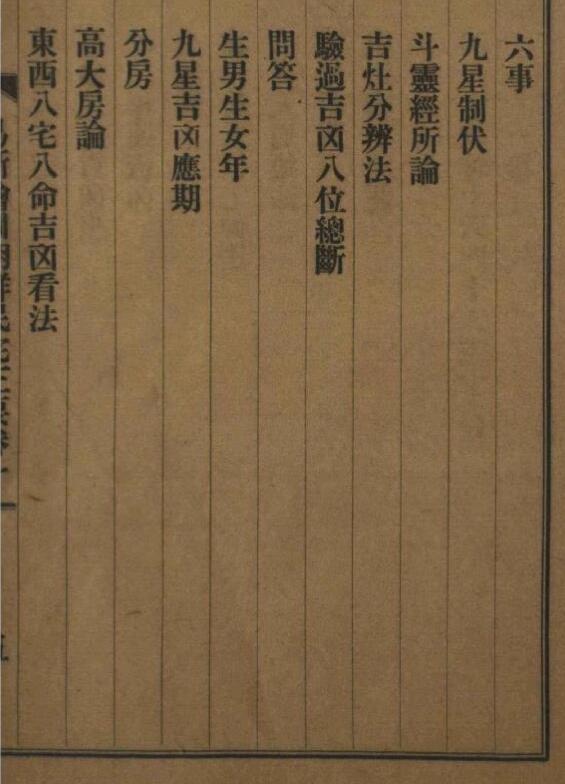 六事
九星制伏
斗靈經所論
吉灶分辨法
驗過吉凶八位總斷
問答
生男生女年
九星吉凶應期
分房
高大房論
東西八宅八命吉凶看法